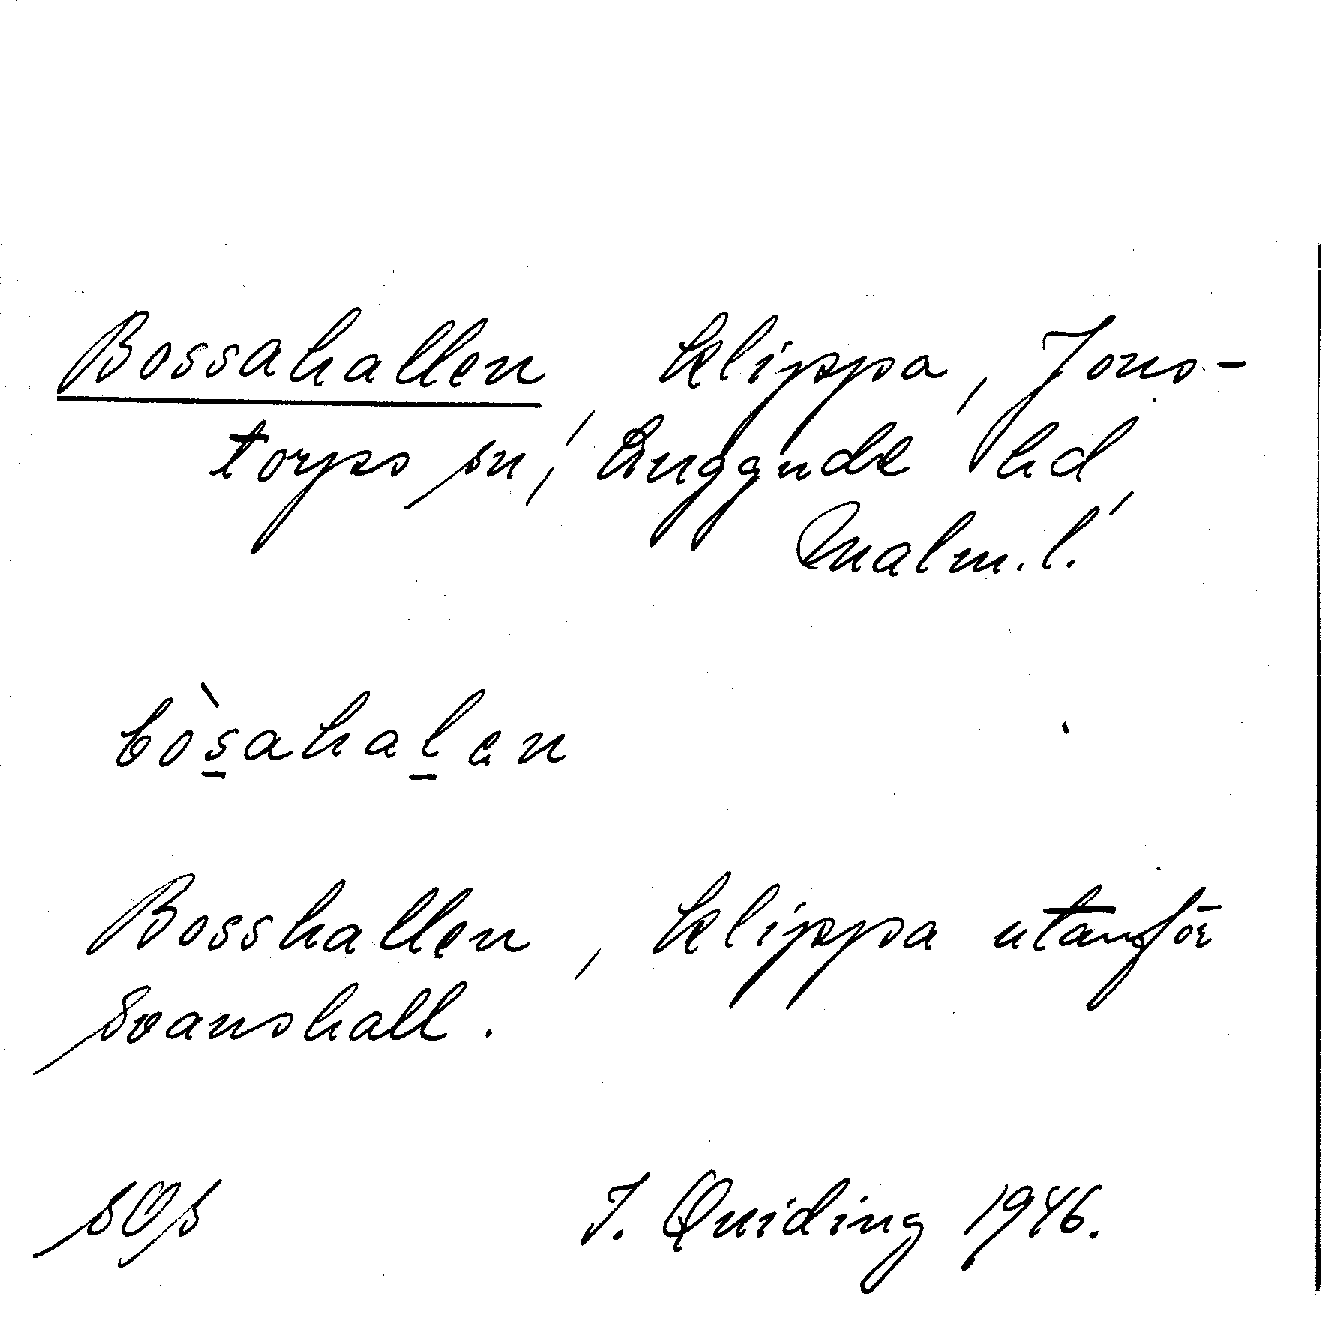 Bossahallen klippa, Jons-
torps sn, Luggude hd,
Malm.l.
bòsahalen
Bosshallen, klippa utanför
Svanshall.
SOS J. Quiding 1946.